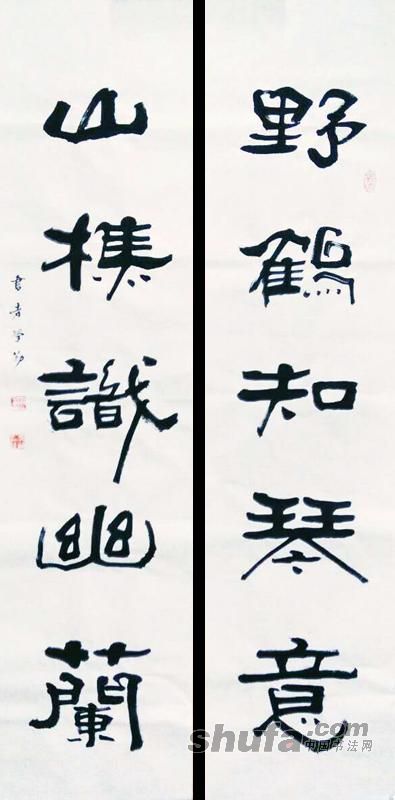 野鶴知琴意
山樵識幽蘭
shufa.com
中国书法网